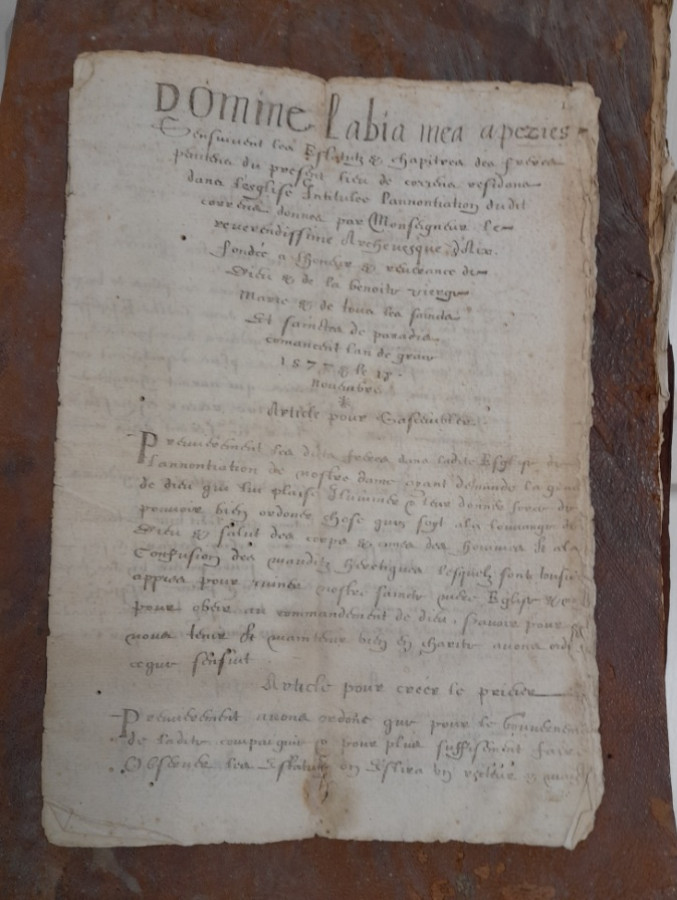 Domine Labia mea aperies
Sensuivent les Estatutz & chapitres des freres
penitens du present lieu de correns residens
dans lesglise Intitulee Lannontiation dudit
correns donnes par Monseigneur le
reverendissime Archevesque d'Aix
fondee a lhoneur & reverance de
Dieu & de la benoite vierge
Marie & de tous les saincts
Et sainctes de paradis
comancent lan de grace
& le 15
novembre
Article pour sasembler
Premierement les dits freres dans ladite Esglise de
Lannontiation de nostre dame ayant demande la grace
de dieu qui luy plaise Iluminer & leur donner
pouvoir bien ordoner chose quy soyt a la louange de
Dieu & salut des corps & ames des hommes Et a la
Confusion des mauditz heretiques lesquelz sont tousjours
appres pour ruiner nostre saincte mere Eglise &
pour obeir au commandement de dieu, scavoir pour
nous tenir Et maintenir bien en charite avons
ce que sensuit
Article pour creer le prieur
Premierement avons ordone que pour le gouvernement
de ladite compaignie & pour plus suffisement faire
Observer les Estatutz on Eslira un recteur &